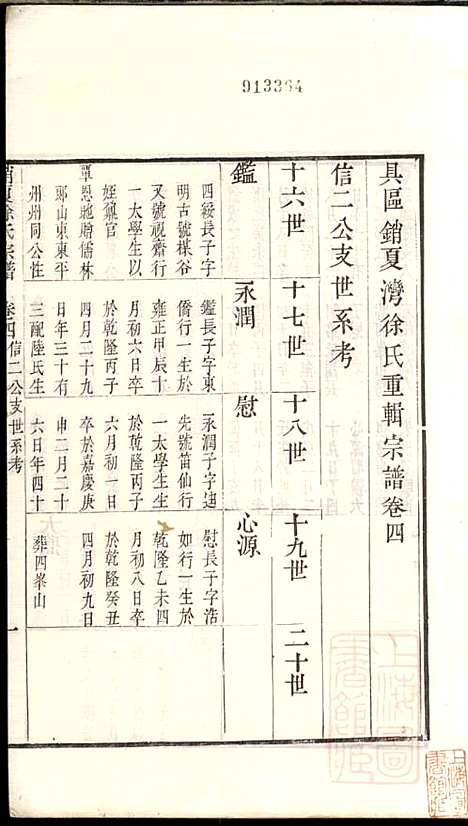 913364
具區銷夏灣徐氏重輯宗譜卷四
信二公支世系考
十六世 十七世 十八世 十九世 二十世
鑑 永潤 慰 心源
四綏長子字
明古號楳谷
又號視齋行
一太學生以
姪鼐官
覃恩貤贈儒林
郎山東東平
州州同公性
鑑長子字東
僑行一生於
雍正甲辰十
月初六日卒
於乾隆丙子
四月二十九
日年三十有
三配陸氏生
永潤子字迪
先號笛仙行
一太學生生
於乾隆丙子
六月初一日
卒於嘉慶庚
申二月二十
六日年四十
慰長子字浩
如行一生於
乾隆乙未四
月初八日卒
於乾隆癸丑
四月初九日
葬四峯山
銷夏徐氏宗譜 卷四信二公支世系考 一
上海圖書館藏
上海圖書館藏